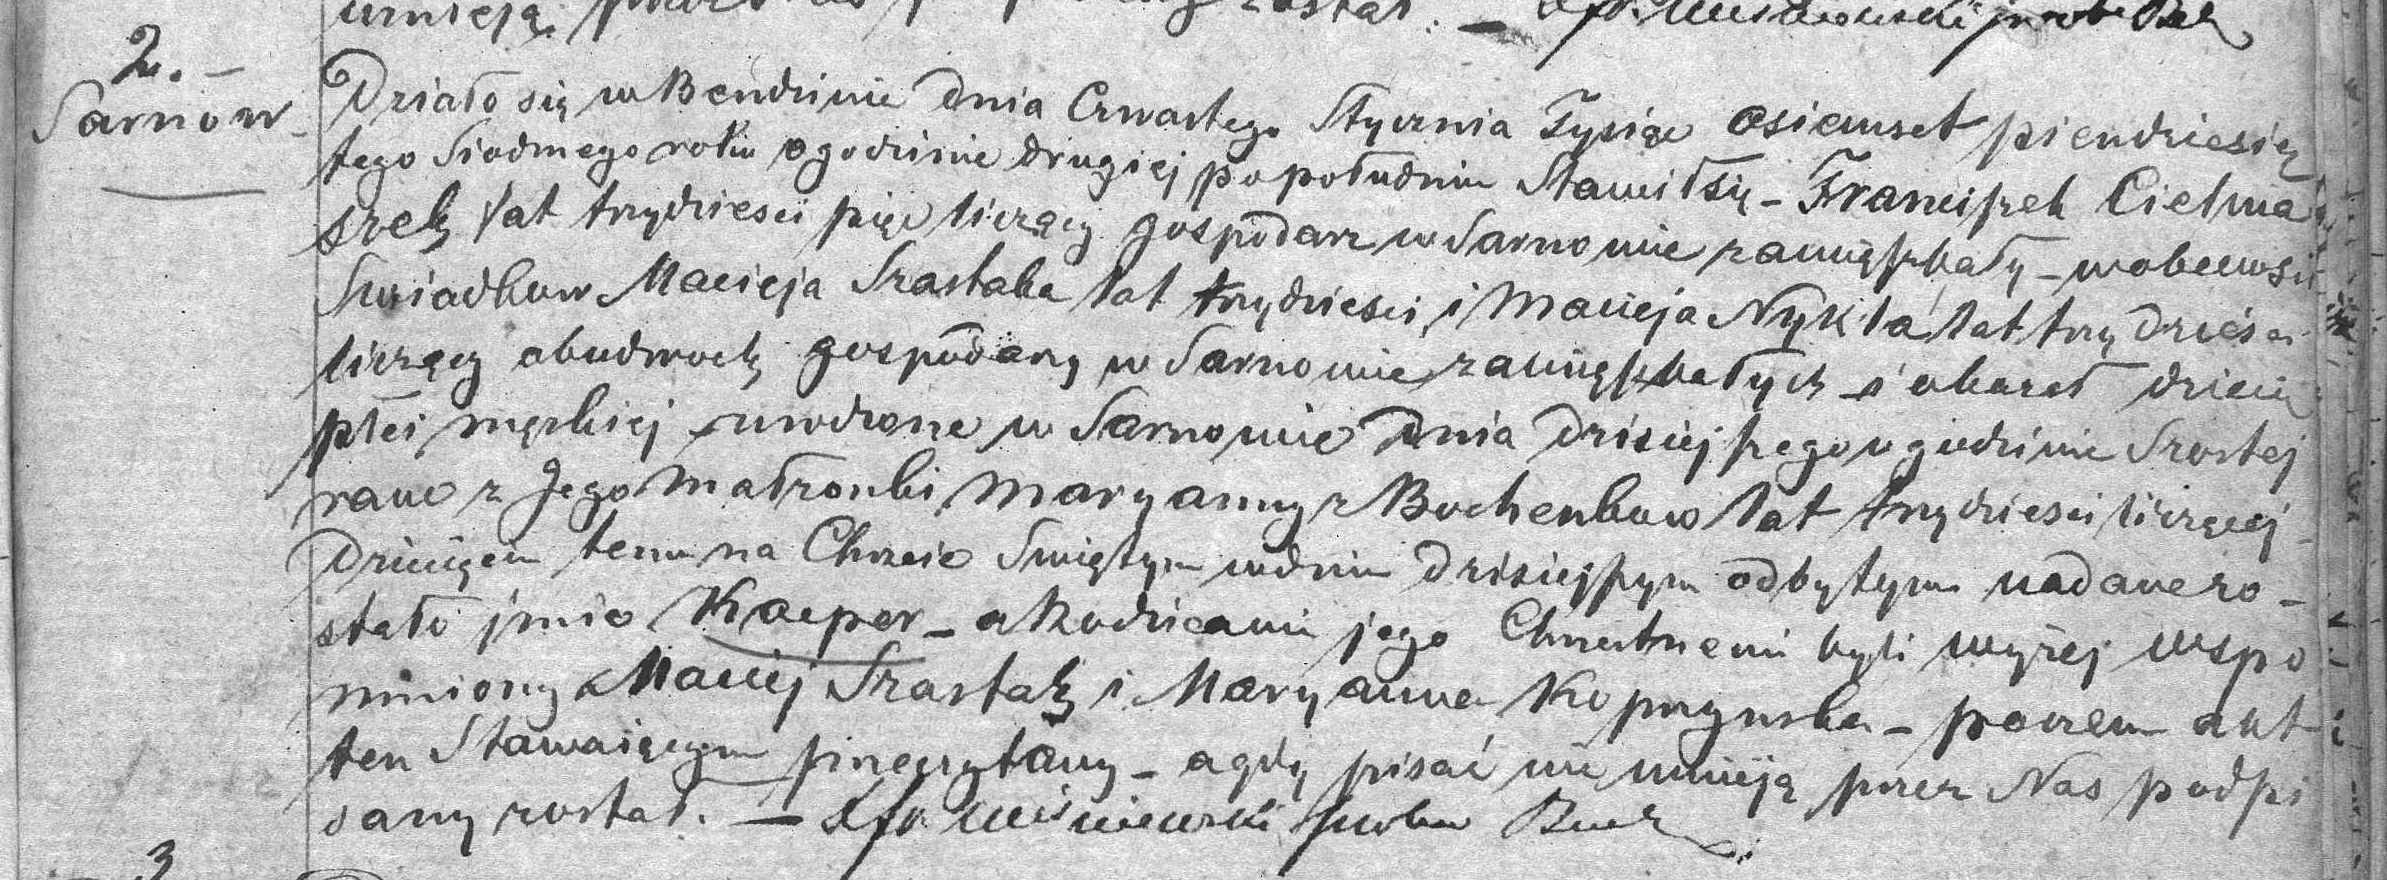 umieją
2. –
Sarnów
Działo się w Bendzinie dnia Czwartego Stycznia Tysiąc osiemset piendziesią
tego Siodmego roku o godzinie drugiej popołudniu Stawił się – Franciszek Cielma
szek lat trzydzieści pięć liczący gospodarz w Sarnowie zamięszkały – w obecności
Swiadkow Macieja Szastaka lat trzydzieści, i Macieja Nykla lat trzydzieści
liczący obudwoch gospodarzy w Sarnowie zamięszkałych – i okazał dziecię
płci męzkiej urodzone w Sarnowie dnia dzisiejszego o godzinie Szostej
rano z Jego małżonki Maryanny z Bochenkow lat trzydzieści liczącej
Dziecięciu temu na Chrzcie Swiętym w dniu dzisiejszym odbytym nadane zo–
stało imie Kacper – a Rodzicami jego Chrzestnemi byli wyżej wspo
mniony Maciej Szastak i Maryanna – poczem akt
ten Stawaiącym przeczytany – a gdy pisać nie umieją przez Nas podpi
sany został. – Wiśniewski
3